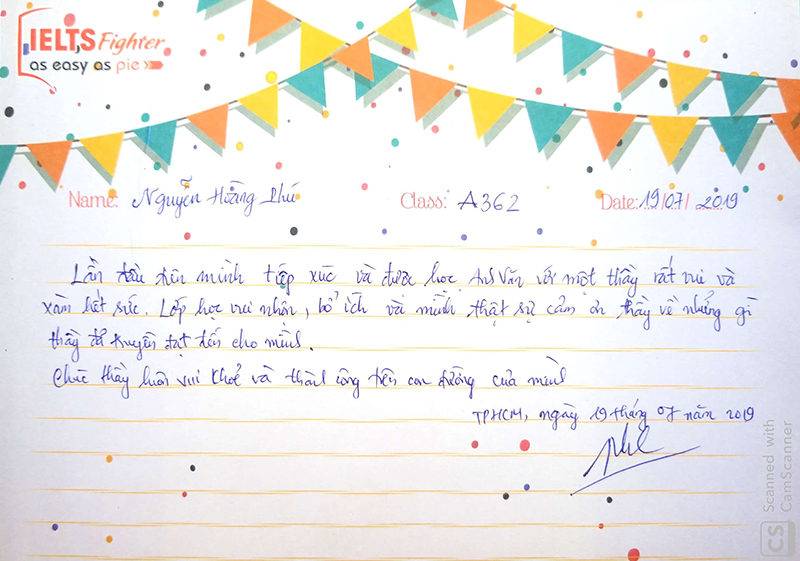 IELTS Fighter
as easy as pie
Name: Nguyễn Hoàng Phú Class: A362 Date: 19/07/2019
Lần đầu tiên mình tiếp xúc và được học Anh Văn với một thầy rất vui và
xàm hết sức. Lớp học vui nhộn, bổ ích và mình thật sự cảm ơn thầy về những gì
thầy đã truyền đạt đến cho mình.
Chúc thầy luôn vui khoẻ và thành công trên con đường của mình
TPHCM, ngày 19 tháng 07 năm 2019
Scanned with
CamScanner
CS